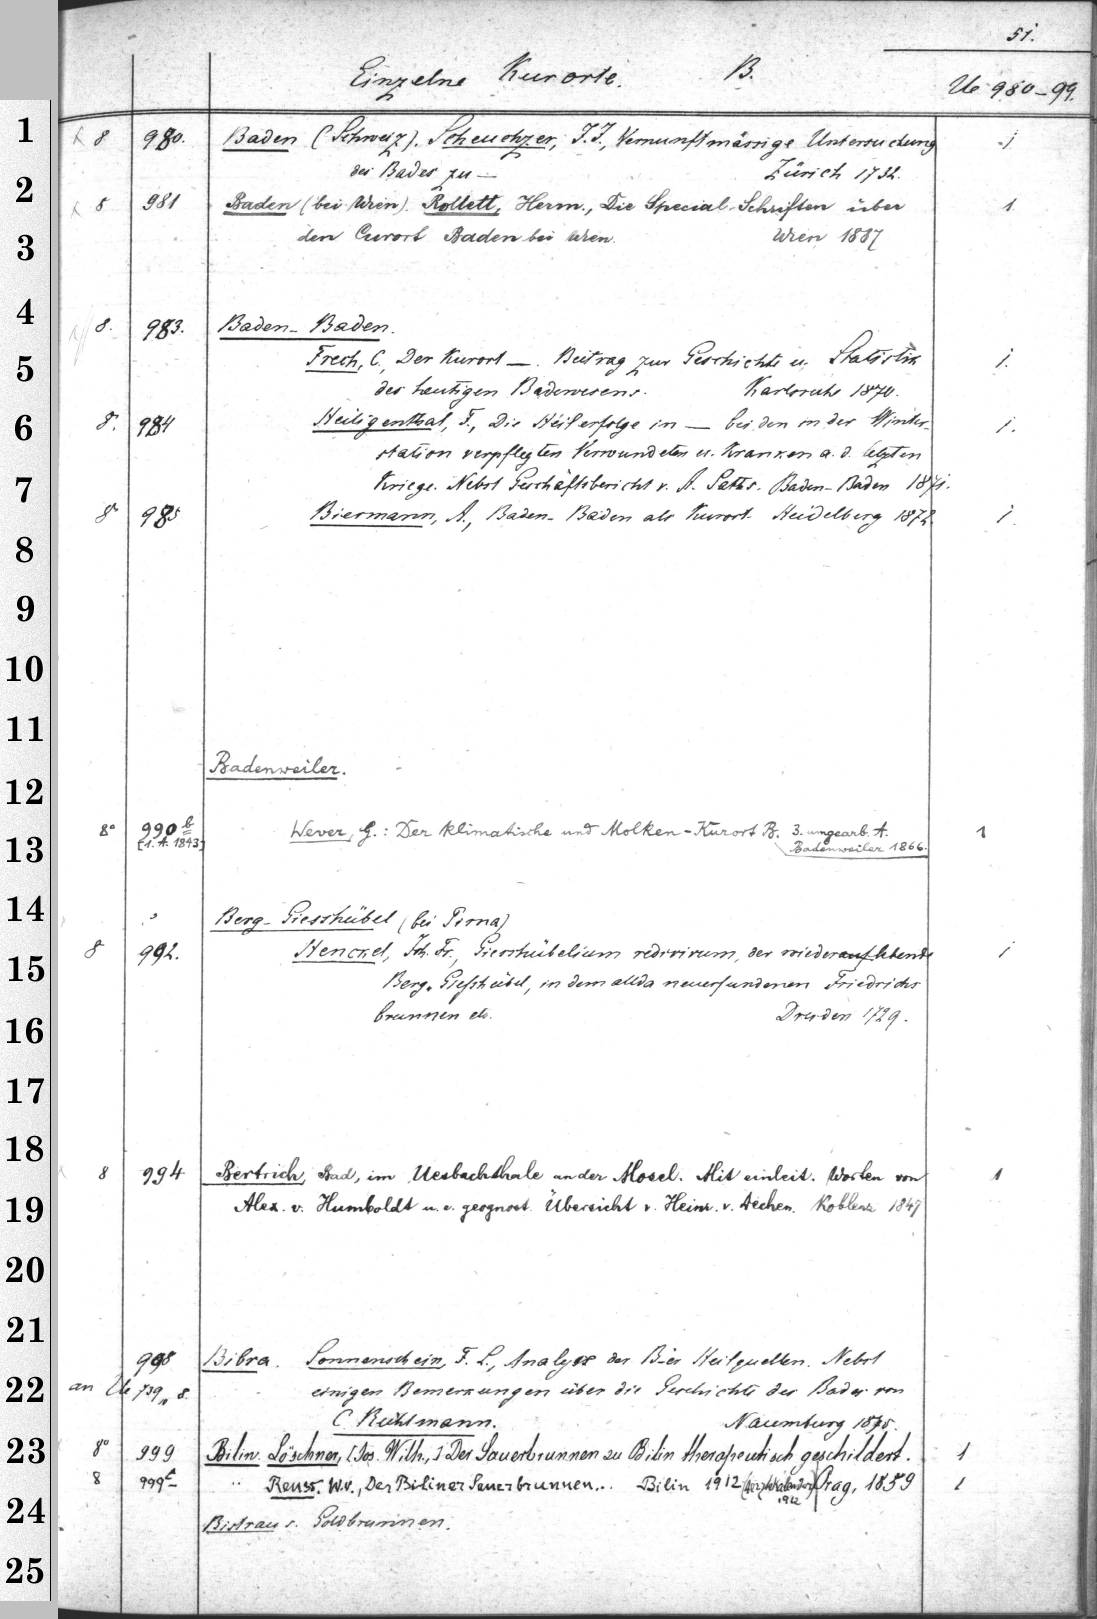 51.
Einzelne Kurorte. B. Ue 980-99.
1
8 980. Baden (Schweiz). Scheuchzer, J. J., Vernunftmässige Untersuchung 1
des Bades zu — Zürich 1732.
2
8 981 Baden (bei Wien). Rollett, Herm., Die Special-Schriften über 1
3
den Curort Baden bei Wien. Wien 1887
4
8. 983. Baden-Baden.
5
Frech, C., Der Kurort —. Beitrag zur Geschichte u. Statistik 1.
des heutigen Badewesens. Karlsruhe 1870.
6
8. 984 Heiligenthal, F., Die Heilerfolge in — bei den in der Winter- 1.
station verpflegten Verwundeten u. Kranken a. d. letzten
7
Kriege. Nebst Geschäftsbericht v. A. Baden-Baden 1871.
8 985 Biermann, A., Baden-Baden als Kurort. Heidelberg 1872. 1.
8
9
10
11
Badenweiler.
12
8° 990 b Wever, G.: Der klimatische und Molken-Kurort B. 3. umgearb. A. 1
[1. A. 1843] Badenweiler 1866.
13
14
Berg-Giesshübel (bei Pirna)
15
8 992. Henckel, Joh. Fr., Giesshübelium redivivum, der wiederauflebende 1
Berg-Gießhübel, in dem allda neuerfundenen Friedrichs
16
brunnen etc. Dresden 1729.
17
18
8 994 Bertrich, Bad, im Uesbachthale an der Mosel. Mit einleit. Worten von 1
19
Alex. v. Humboldt u. e. geognost. Übersicht v. Heinr. v. Dechen. Koblenz 1847
20
21
998 Bibra. Sonnenschein, F. L., Analyse der Heilquellen. Nebst
22
an Ue 739, 8. einigen Bemerkungen über die Geschichte des Bades von
C. Ruhlmann. Naumburg 1875.
23
8° 999 Bilin. Löschner, [Jos. Wilh.,] Der Sauerbrunnen zu Bilin therapeutisch geschildert. 1
8 999 c " Reuss, W. v., Der Biliner Sauerbrunnen... Bilin 1912 Prag, 1859 1
1912
24
Bistrau s. Goldbrunnen.
25